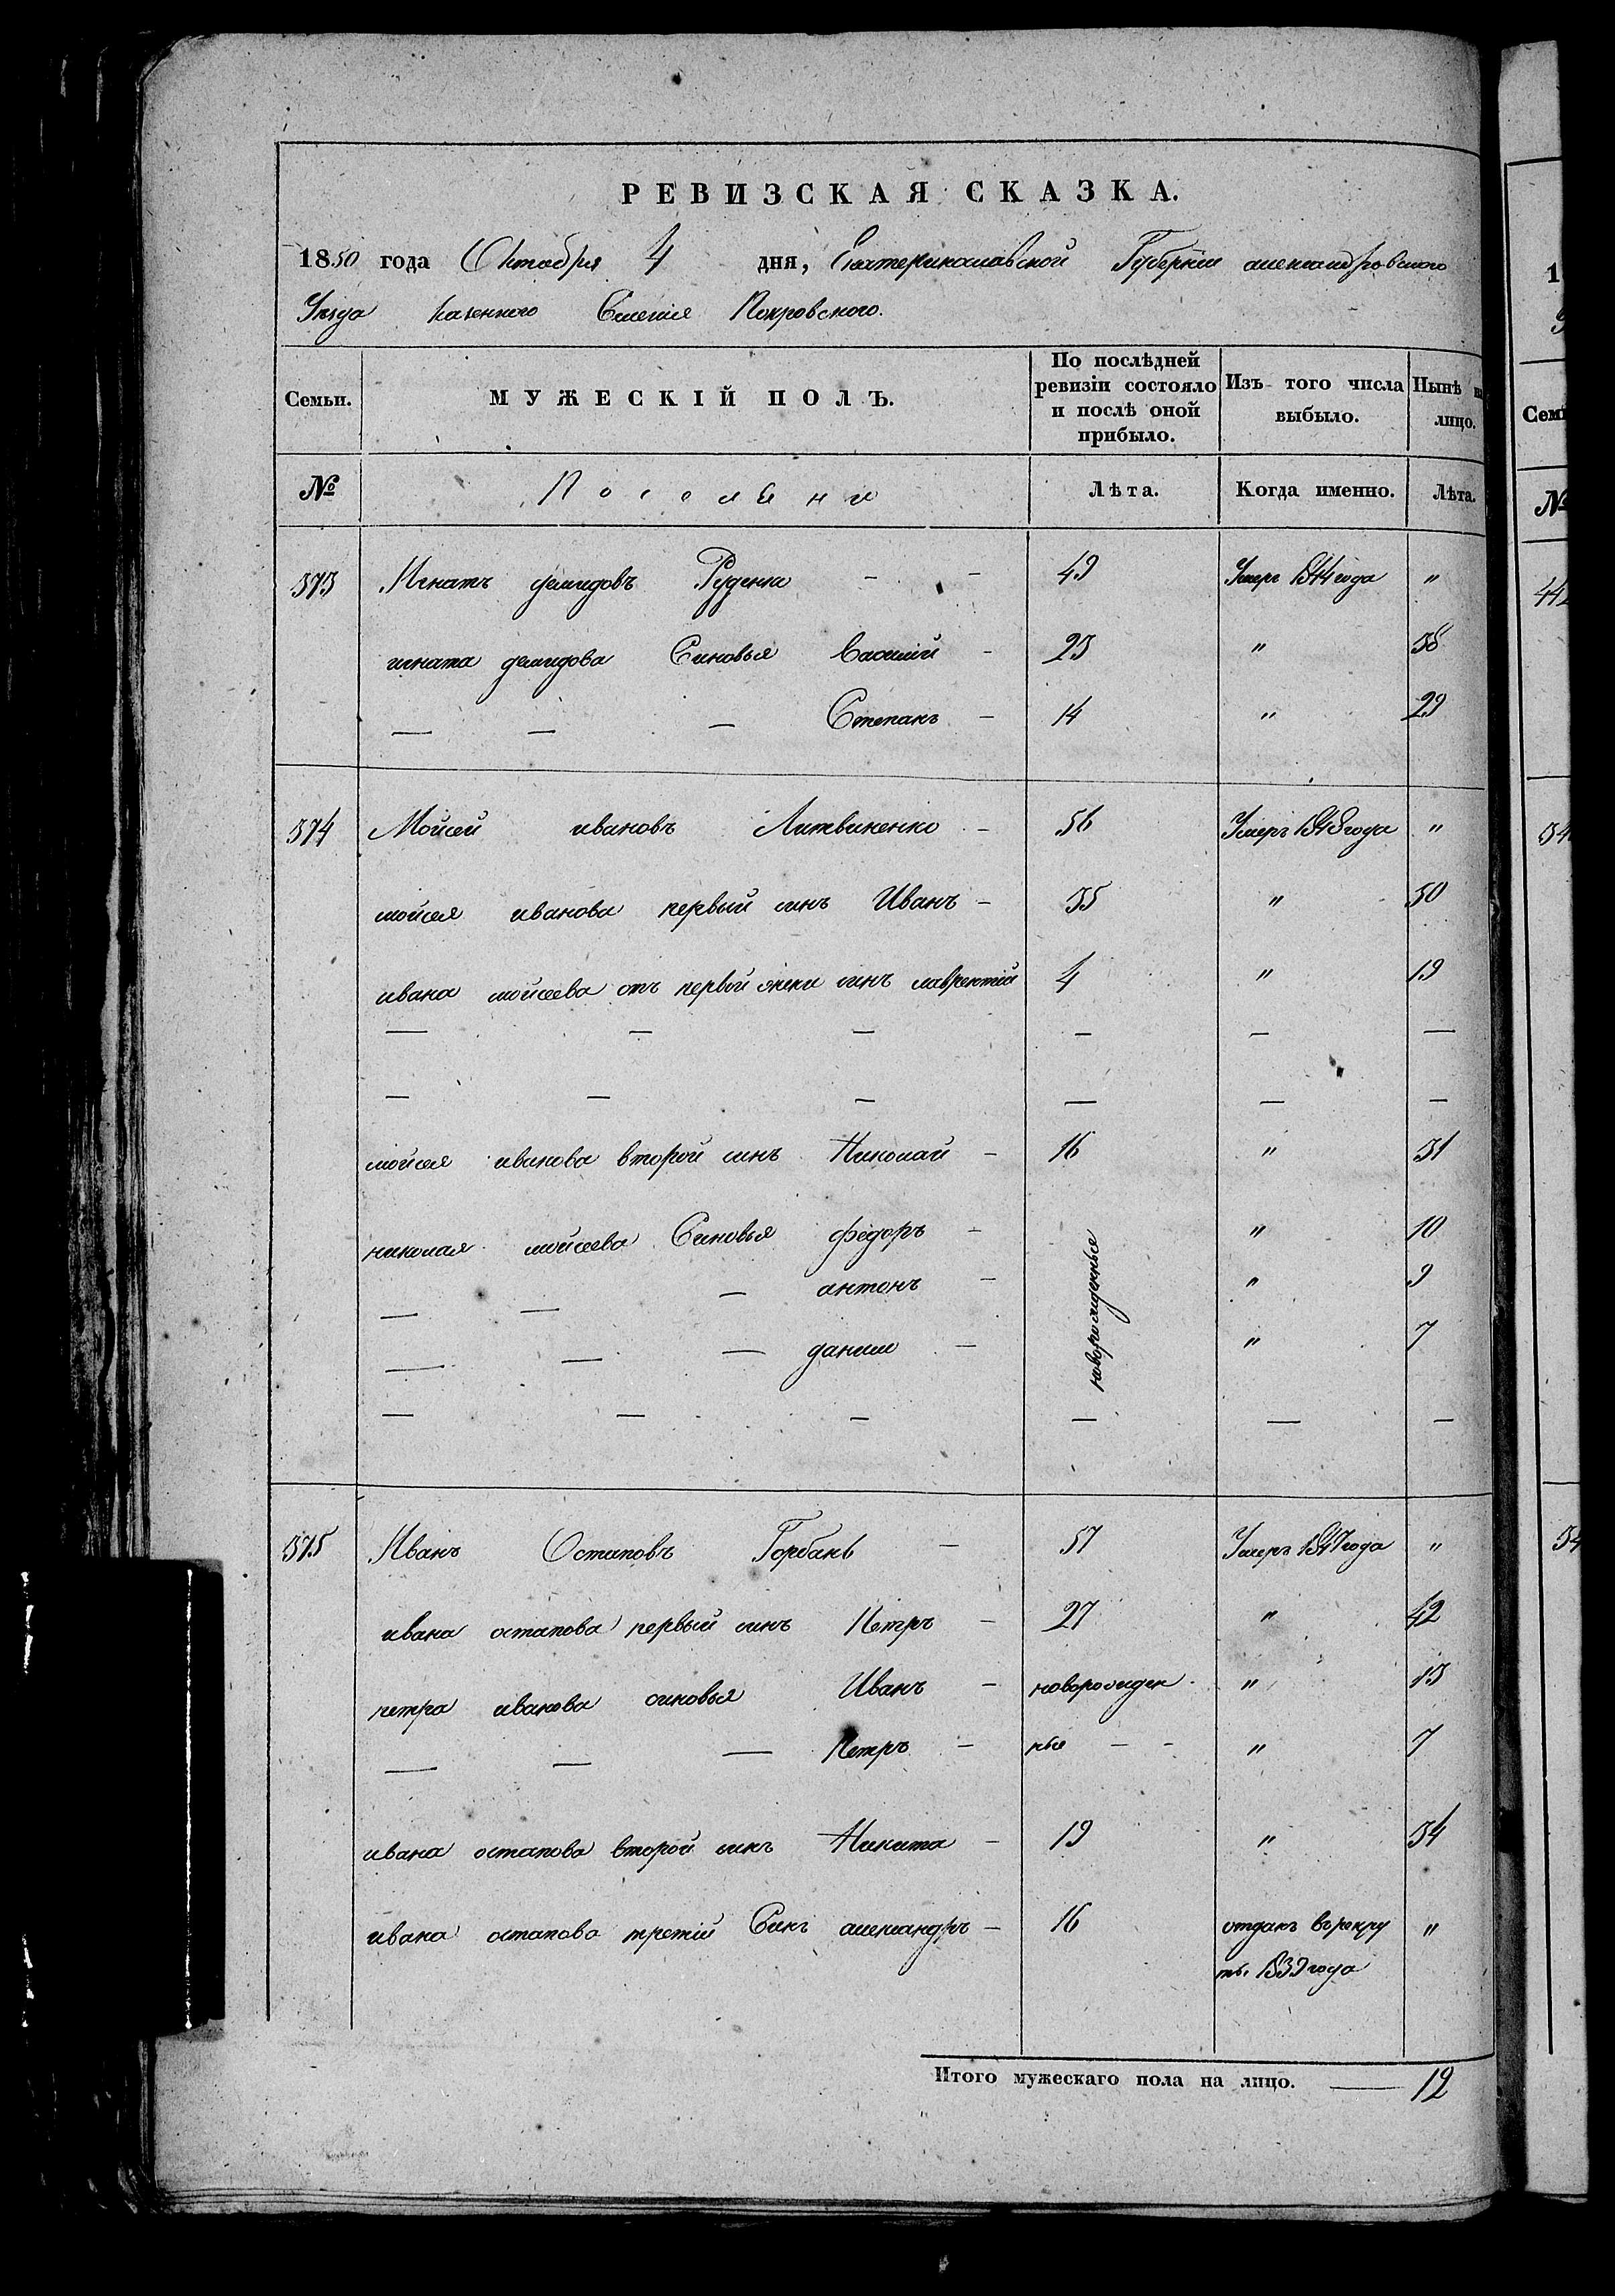 РЕВИЗСКАЯ СКАЗКА.
1850 года Октобря 4 дня, Екатеринославской Губернии александровского
Уезда казенного Селения Покровского.
Семьи. МУЖЕСКІЙ ПОЛЪ. По послѣдней ревизіи состояло и послѣ оной прибыло. Изъ того числа выбыло. Нынѣ на лицо.
№ Поселяне Лѣта. Когда именно. Лѣта.
373 Игнатъ демидовъ Руденко - - 49 Умеръ 1844 года "
игната демидова Синовья Василий - 23 " 38
— — — Степанъ - 14 " 29
374 Мойсей ивановъ Литвиненко - 56 Умеръ 1848 года "
мойсея иванова первый синъ Иванъ - 35 " 50
ивана мойсеева отъ первой жени синъ лаврентий 4 " 19
— — — — — —
— — — — — —
мойсея иванова второй синъ Николай - 16 " 31
николая мойсеева Синовья федоръ - новорожденные " 10
— — — антонъ - " 9
— — — данило - " 7
— — — — — —
375 Иванъ Остаповъ Горбань - 57 Умеръ 1847 года "
ивана остапова первый синъ Петръ - 27 " 42
петра иванова синовья Иванъ - новорожден " 13
— — — Петръ - ные - - " 7
ивана остапова второй синъ Никита - 19 " 34
ивана остапова третий Синъ александръ - 16 отданъ врекру "
ты 1839 года
Итого мужескаго пола на лицо. — 12
1
Сем
№
442
34
34